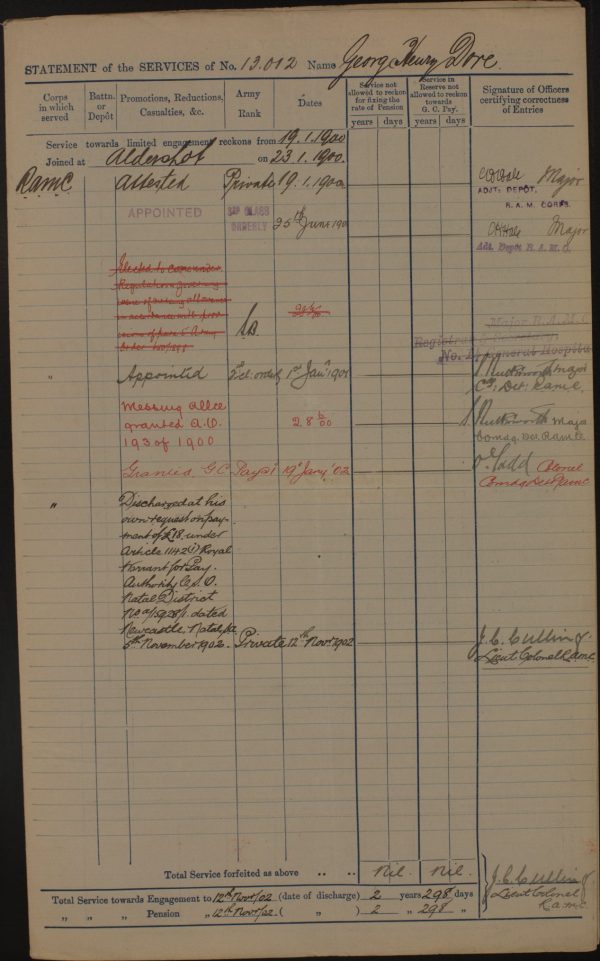 STATEMENT of the SERVICES of No. 13.012 Name Georg Henry Dore
Corps in which served
Battn. or Depôt
Promotions, Reductions, Casualties, &c.
Army Rank
Dates
Service not allowed to reckon for fixing the rate of Pension
Service in Reserve not allowed to reckon towards G. C. Pay.
Signature of Officers certifying correctness of Entries
years days years days
Service towards limited engagement reckons from 19.1.1900
Joined at Aldershot on 23.1.1900.
RAMC Attested Private 19.1.1900 Major
ADJT: DEPÔT,
R. A. M. CORPS.
APPOINTED 3RD CLASS ORDERLY 25th June 190 Major
Adt. Depôt R. A. M. C.
Elected to come under
Regulations governing
issue of messing allowance
in accordance with prov
isions of para 5 Army
Order
Major R.A.M.C
Registrar & Secretary.
General Hospital
" Appointed 2nd cl. orderly 1st Jany 1901 Major
Cg. Det: RAMC
Messing Allce
granted A.O.
193 of 1900
2.8
Major
Comdg. Det. RAMC
Granted G.C. Pay @ 1d 19th Jany '02 Todd Colonel
Comdg Det RAMC
" Discharged at his
own request on pay-
ment of £18 under
Article 1142(i) Royal
Warrant for Pay.
Authority C.S.O.
Natal District
No. dated
Newcastle Natal, the
6th November 1902. Private 12th Novr. 1902 J. C. Culling
Lieut Colonel RAMC
Total Service forfeited as above .. .. Nil. Nil.
Total Service towards Engagement to 12th Novr/02 (date of discharge) 2 years 298 days
" " " Pension " 12th Novr/02 ( " ) 2 " 298 "
J. C. Culling
Lieut Colonel
R.A.M.C